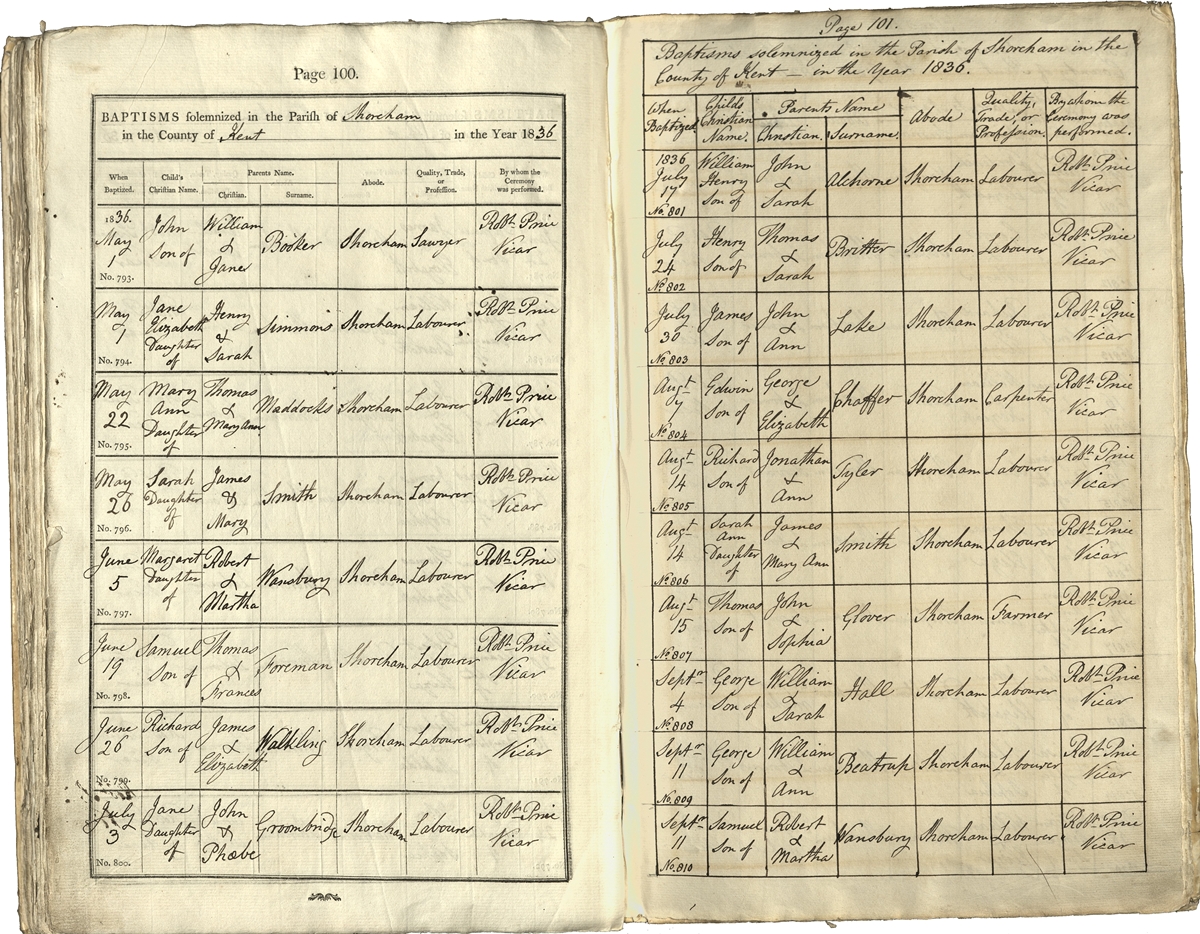 Page 100.
BAPTISMS solemnized in the Parish of Shoreham
in the County of Kent in the Year 1836
When Baptized. Child's Christian Name. Parents Name. Christian. Surname. Abode. Quality, Trade, or Profession. By whom the Ceremony was performed.
1836. May 1 No. 793. John Son of William & Jane Booker Shoreham Sawyer Robt. Price Vicar
May 1 No. 794. Jane Elizabeth Daughter of Henry & Sarah Simmons Shoreham Labourer Robt. Price Vicar
May 22 No. 795. Mary Ann Daughter of Thomas & Mary Ann Maddocks Shoreham Labourer Robt. Price Vicar
May 26 No. 796. Sarah Daughter of James & Mary Smith Shoreham Labourer Robt. Price Vicar
June 5 No. 797. Margaret Daughter of Robert & Martha Wansbury Shoreham Labourer Robt. Price Vicar
June 19 No. 798. Samuel Son of Thomas & Frances Foreman Shoreham Labourer Robt. Price Vicar
June 26 No. 799. Richard Son of James & Elizabeth Walkling Shoreham Labourer Robt. Price Vicar
July 3 No. 800. Jane Daughter of John & Phœbe Groombridge Shoreham Labourer Robt. Price Vicar
Page 101.
Baptisms solemnized in the Parish of Shoreham in the
County of Kent — in the Year 1836.
When Baptized Childs Christian Name. Parents Name Christian. Surname. Abode Quality, Trade, or Profession. By whom the Ceremony was performed.
1836 July 17 No. 801 William Henry Son of John & Sarah Alchorne Shoreham Labourer Robt. Price Vicar
July 24 No. 802 Henry Son of Thomas & Sarah Britter Shoreham Labourer Robt. Price Vicar
July 30 No. 803 James Son of John & Ann Lake Shoreham Labourer Robt. Price Vicar
Augt 7 No. 804 Edwin Son of George & Elizabeth Chaffer Shoreham Carpenter Robt. Price Vicar
Augt 14 No. 805 Richard Son of Jonathan & Ann Tyler Shoreham Labourer Robt. Price Vicar
Augt 14 No. 806 Sarah Ann Daughter of James & Mary Ann Smith Shoreham Labourer Robt. Price Vicar
Augt 15 No. 807 Thomas Son of John & Sophia Glover Shoreham Farmer Robt. Price Vicar
Septr 4 No. 808 George Son of William & Sarah Hall Shoreham Labourer Robt. Price Vicar
Septr 11 No. 809 George Son of William & Ann Beatrup Shoreham Labourer Robt. Price Vicar
Septr 11 No. 810 Samuel Son of Robert & Martha Wansbury Shoreham Labourer Robt. Price Vicar